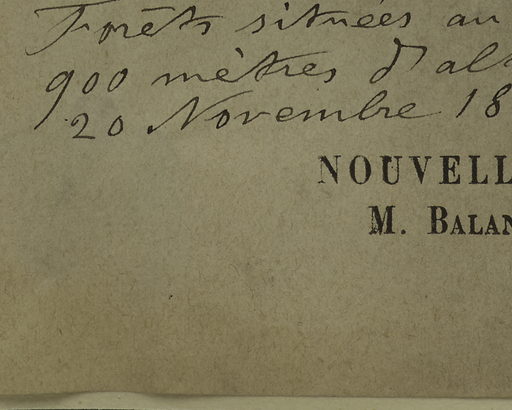 Forêts situées au
900 mètres d'al
20 Novembre 18
NOUVELL
M. BALAN